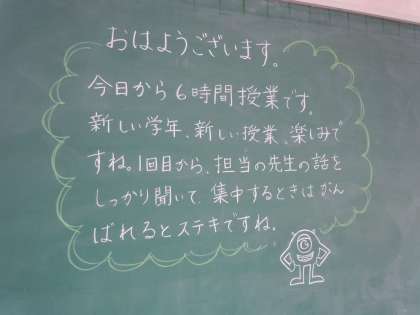 おはようございます。
今日から6時間授業です。
新しい学年、新しい授業、楽しみで
すね。1回目から、担当の先生の話を
しっかり聞いて、集中するときは がん
ばれるとステキですね。